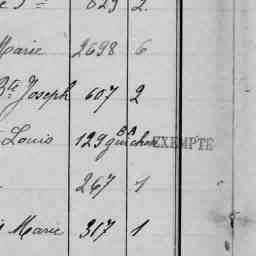 629 2.
Marie 2698 6
Bte Joseph 607 2
Louis 129 guichet BA EXEMPTE
267 1
Marie 317 1